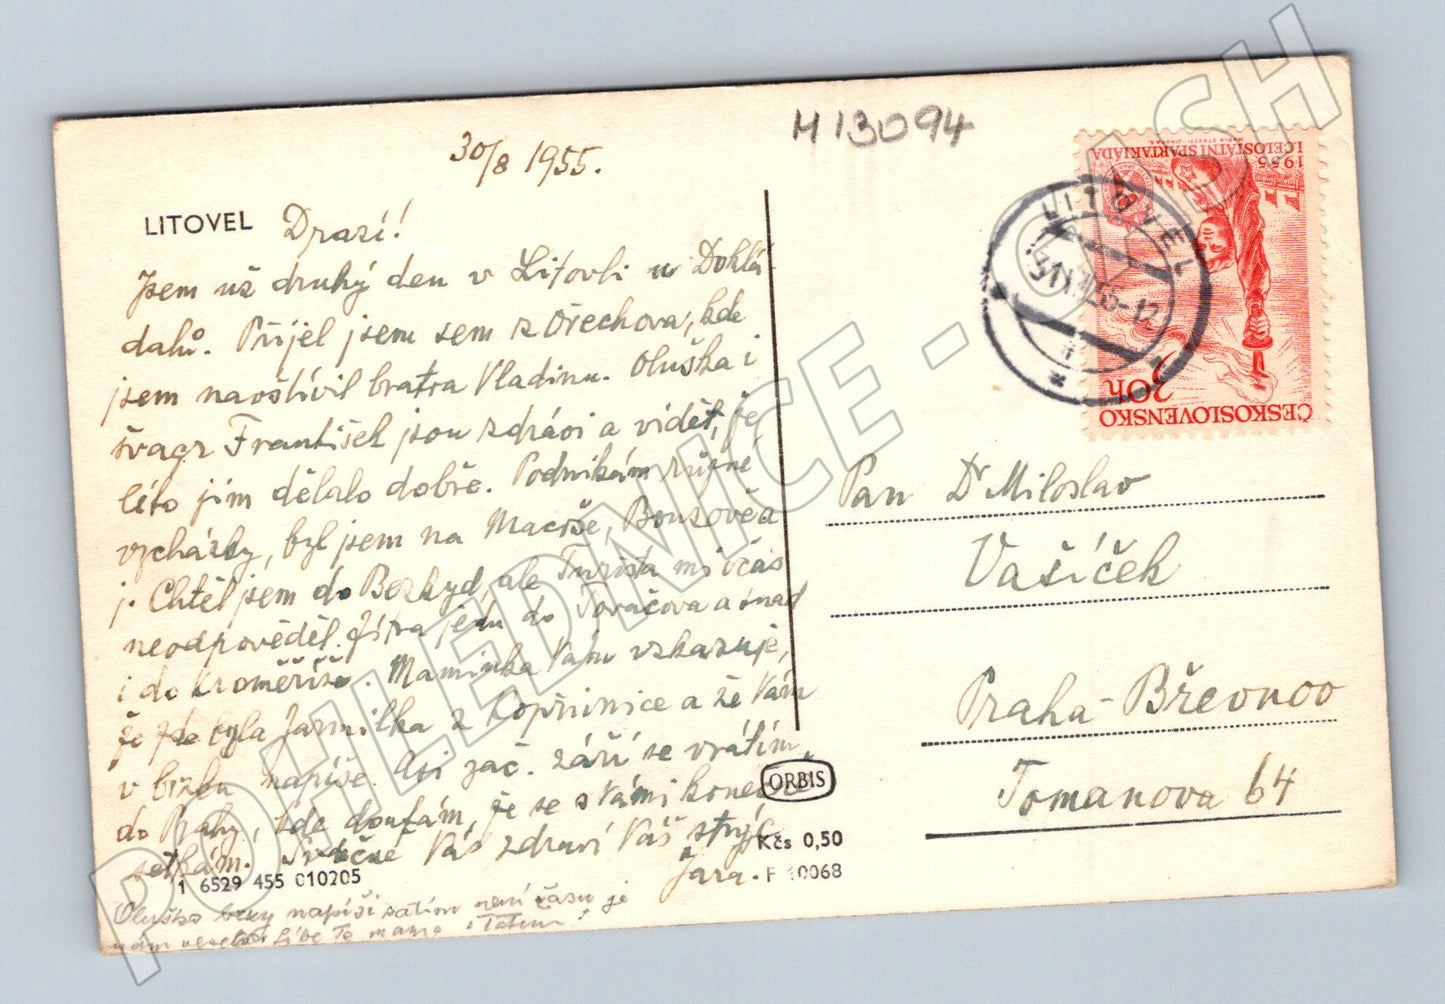 H13094
30/8 1955.
LITOVEL
Drazí!
Jsem už druhý den v Litovli u Doklá
dalů. Přijel jsem sem z Ořechova, kde
jsem navštívil bratra Vladinu. Oluška i
švagr František jsou zdrávi a viděl, je
léto jim dělalo dobře. Podnikám různé
vycházky, byl jsem na Macoše, Bouzově a
j. Chtěl jsem do Bezkyd, ale Turista mi včas
neodpověděl. Zítra jedu do Tovačova a snad
i do Kroměříže. Maminka Vám vzkazuje,
že zde byla Jarmilka z Kopřivnice a že Vám
v brzku napíše. Asi zač. září se vrátím
do Prahy, kde doufám, že se s Vámi konečně
setkám. Srdečně Vás zdraví Váš strýc
Jára.
Oluška brzy napíši zatím není času je
nám veselo! Líbe Tě máma i Tatem!
1 6529 455 010205
ORBIS
Kčs 0,50
F 10068
1955
I.CELOSTÁTNÍ SPARTAKIÁDA
30h
ČESKOSLOVENSKO
LITOVEL
Pan Dr Miloslav
Vašíček
Praha-Břevnov
Tomanova 64
POHLEDNICE - CASH